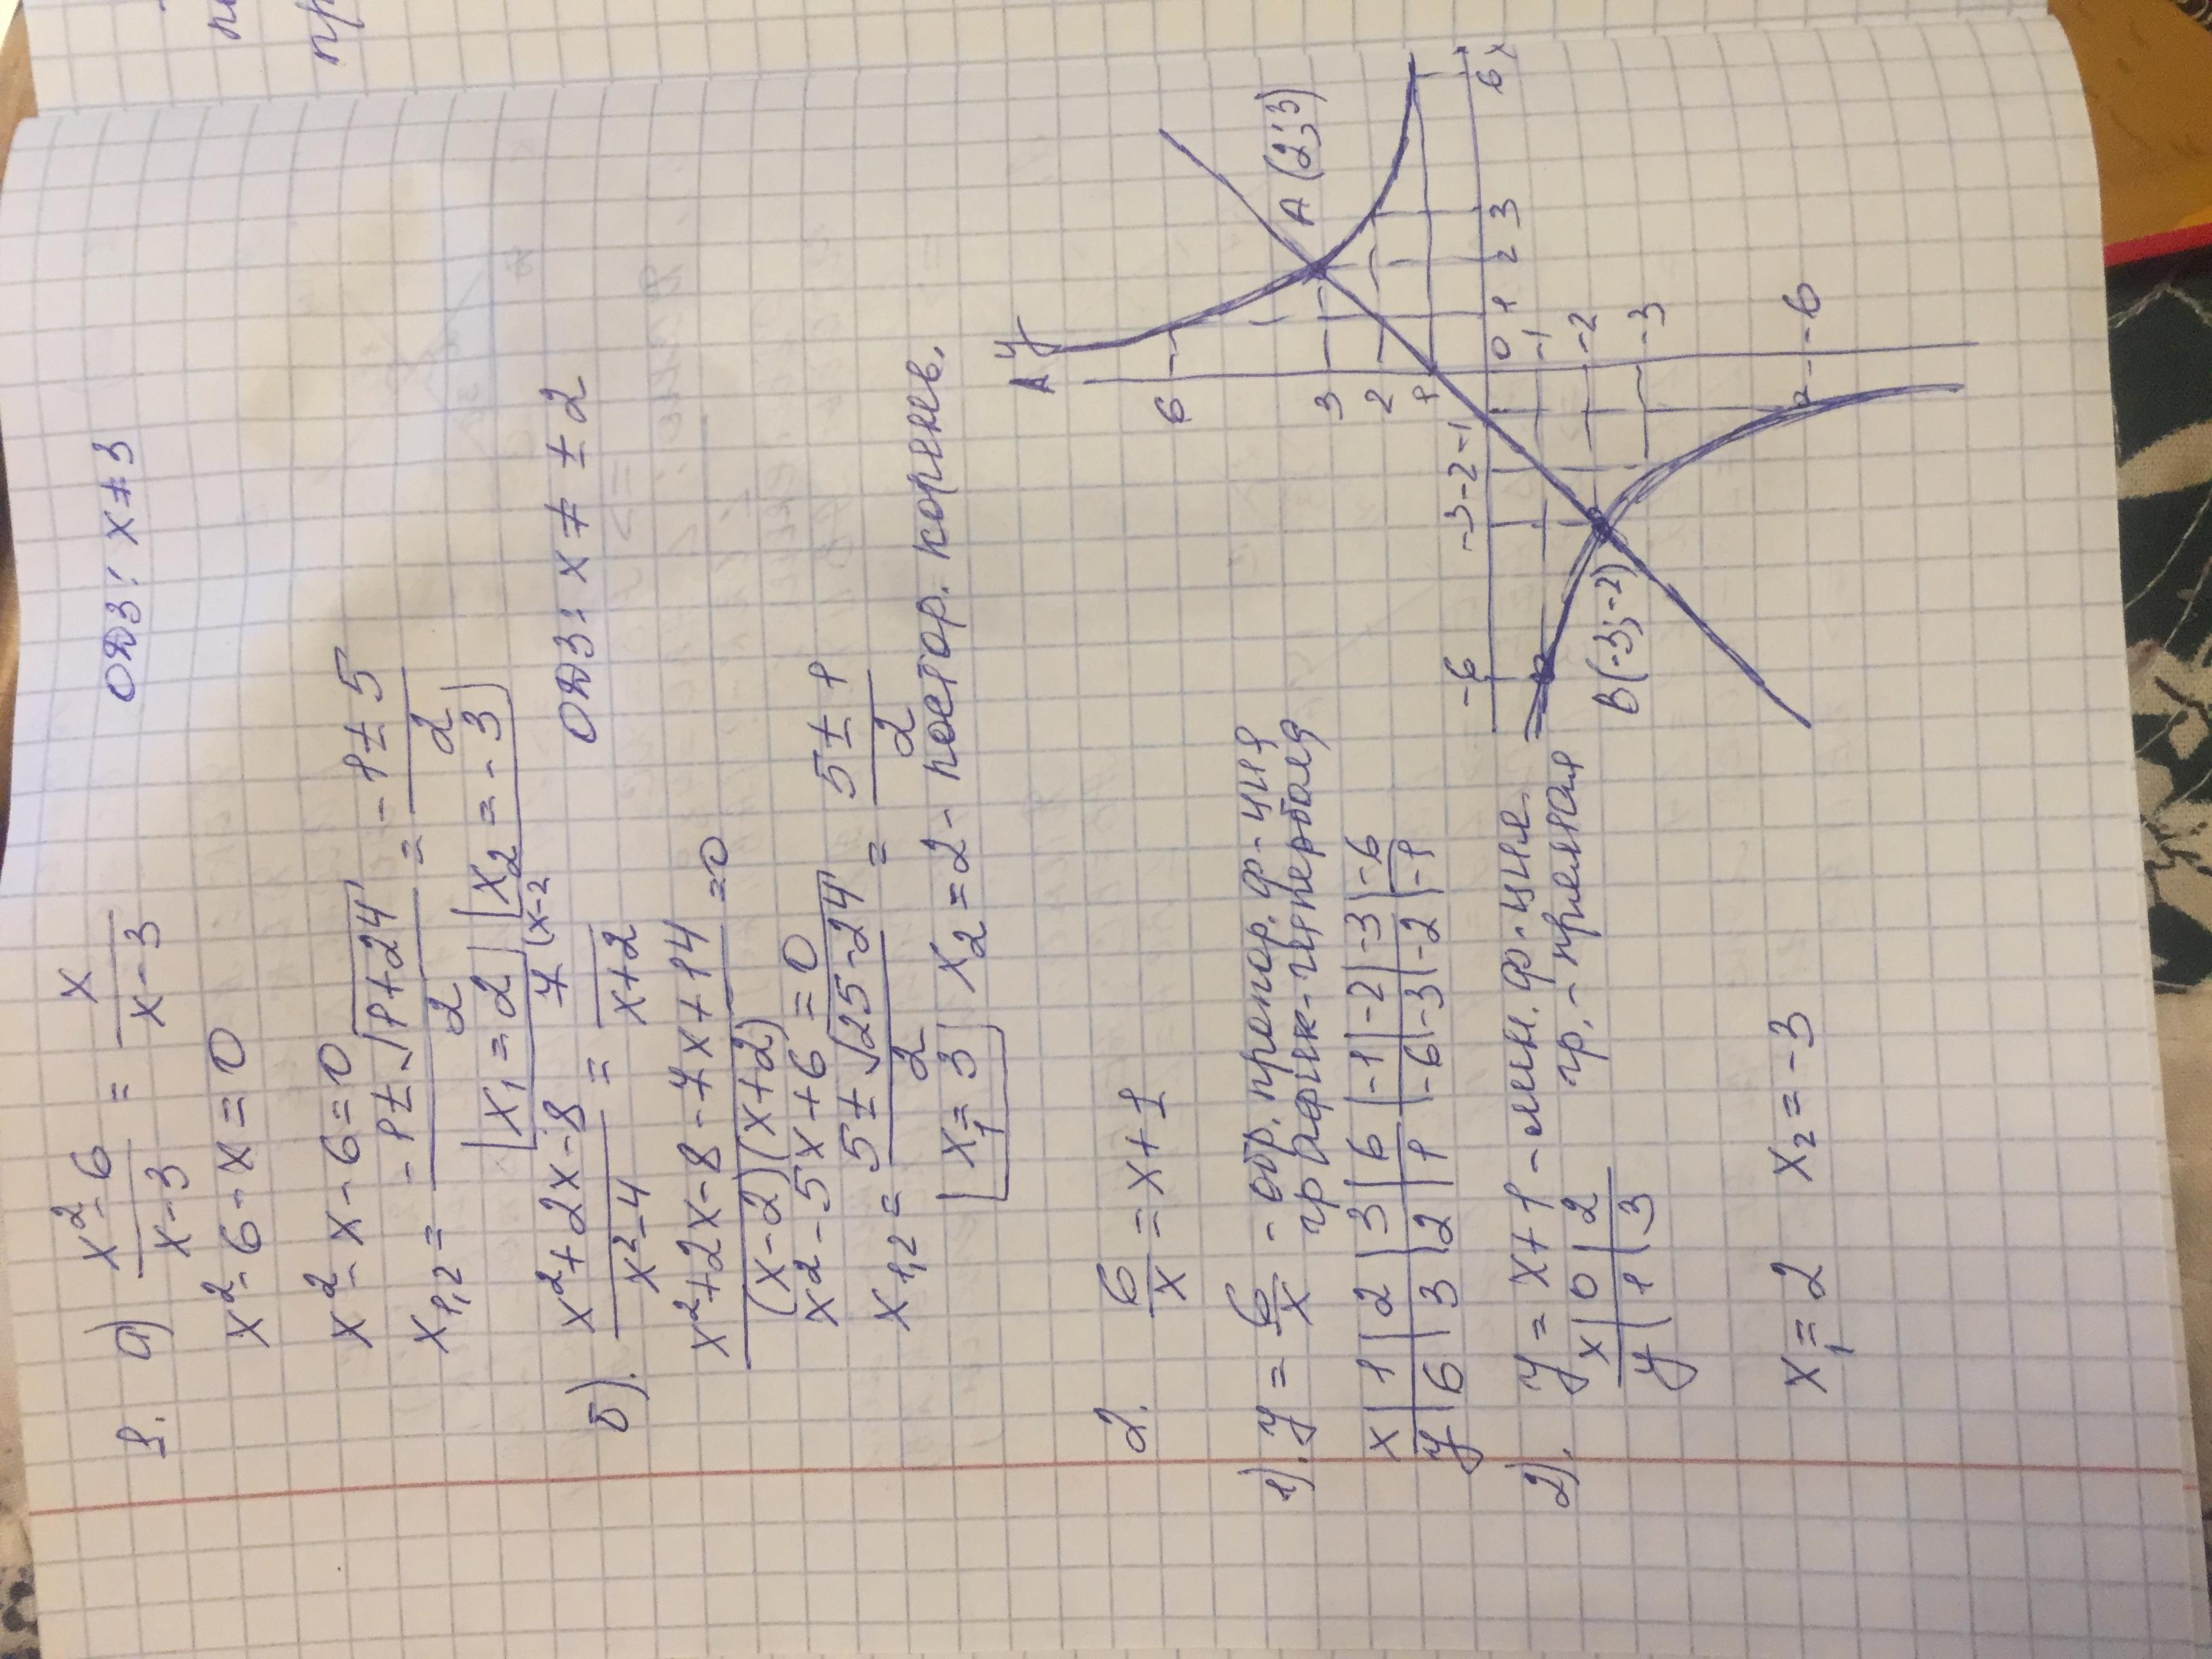 1. а) (x²-6)/(x-3) = x/(x-3) ОДЗ: x≠3
x²-6-x=0
x²-x-6=0
x₁,₂ = (-1±√(1+24))/2 = (-1±5)/2
x₁=2 x₂=-3
б). (x²+2x-8)/(x²-4) = 7/(x+2) (x-2 ОДЗ: x≠±2
(x²+2x-8-7x+14)/((x-2)(x+2)) =0
x²-5x+6=0
x₁,₂ = (5±√(25-24))/2 = (5±1)/2
x₁=3 x₂=2- постор. корень.
2. 6/x = x+1
1). y = 6/x - обр. пропор. ф-ция
график-гипербола
x | 1 | 2 | 3 | 6 | -1 | -2 | -3 | -6
y | 6 | 3 | 2 | 1 | -6 | -3 | -2 | -1
2). y = x+1 -лин. ф-ция.
гр.-прямая
x | 0 | 2
y | 1 | 3
x₁=2 x₂=-3
y
6
3
2
1
A (2;3)
-6 -3 -2 -1 0 1 2 3 6 x
-1
-2
-3
-6
B(-3;-2)